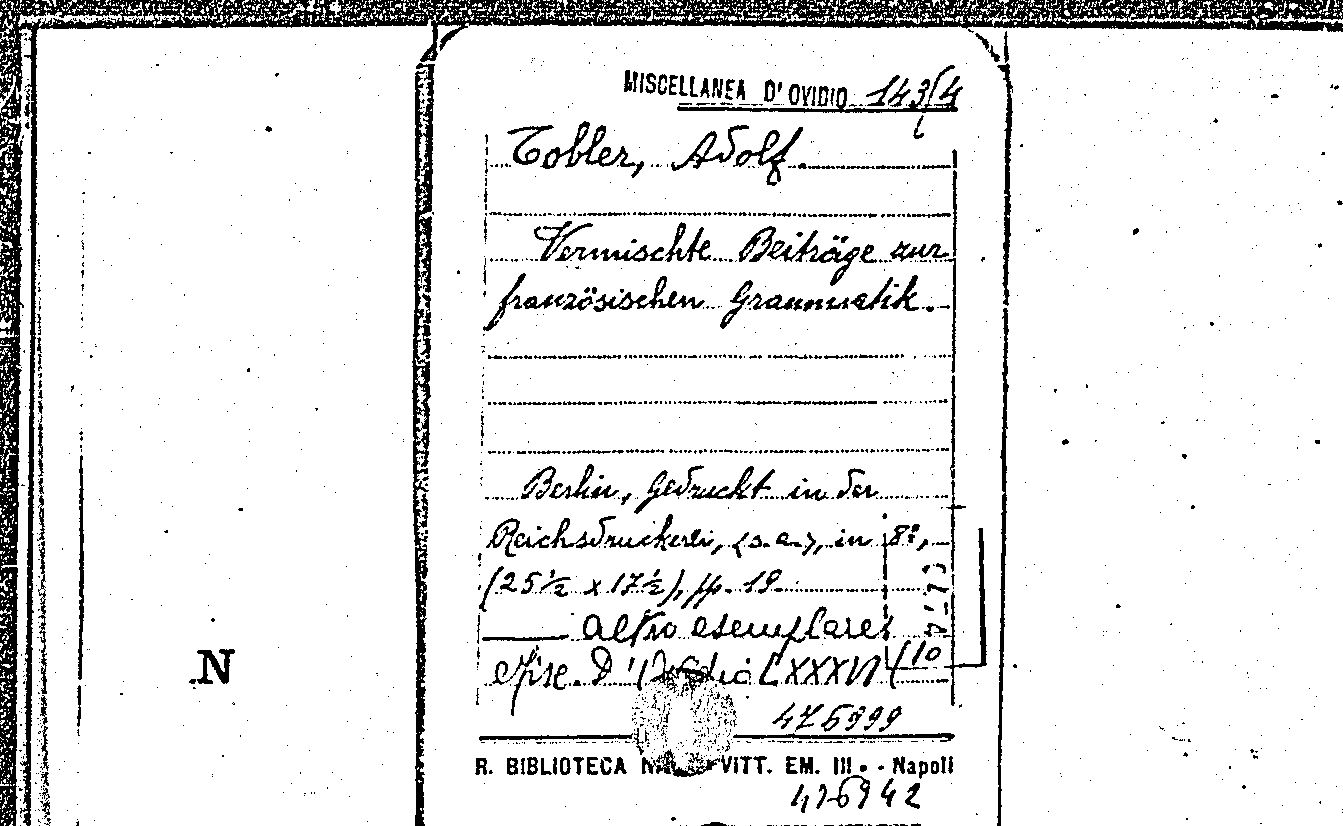 MISCELLANEA D'OVIDIO 143/4
Tobler, Adolf.
Vermischte Beiträge zur
französischen Grammatik.
Berlin, Gedruckt in der
Reichsdruckerei, (s. a.), in 8º,
(25½ x 17½), pp. 19.
altro esemplare:
Misc. D'Ovidio LXXXVI (10
476999
R. BIBLIOTECA VITT. EM. III - Napoli
476942
N